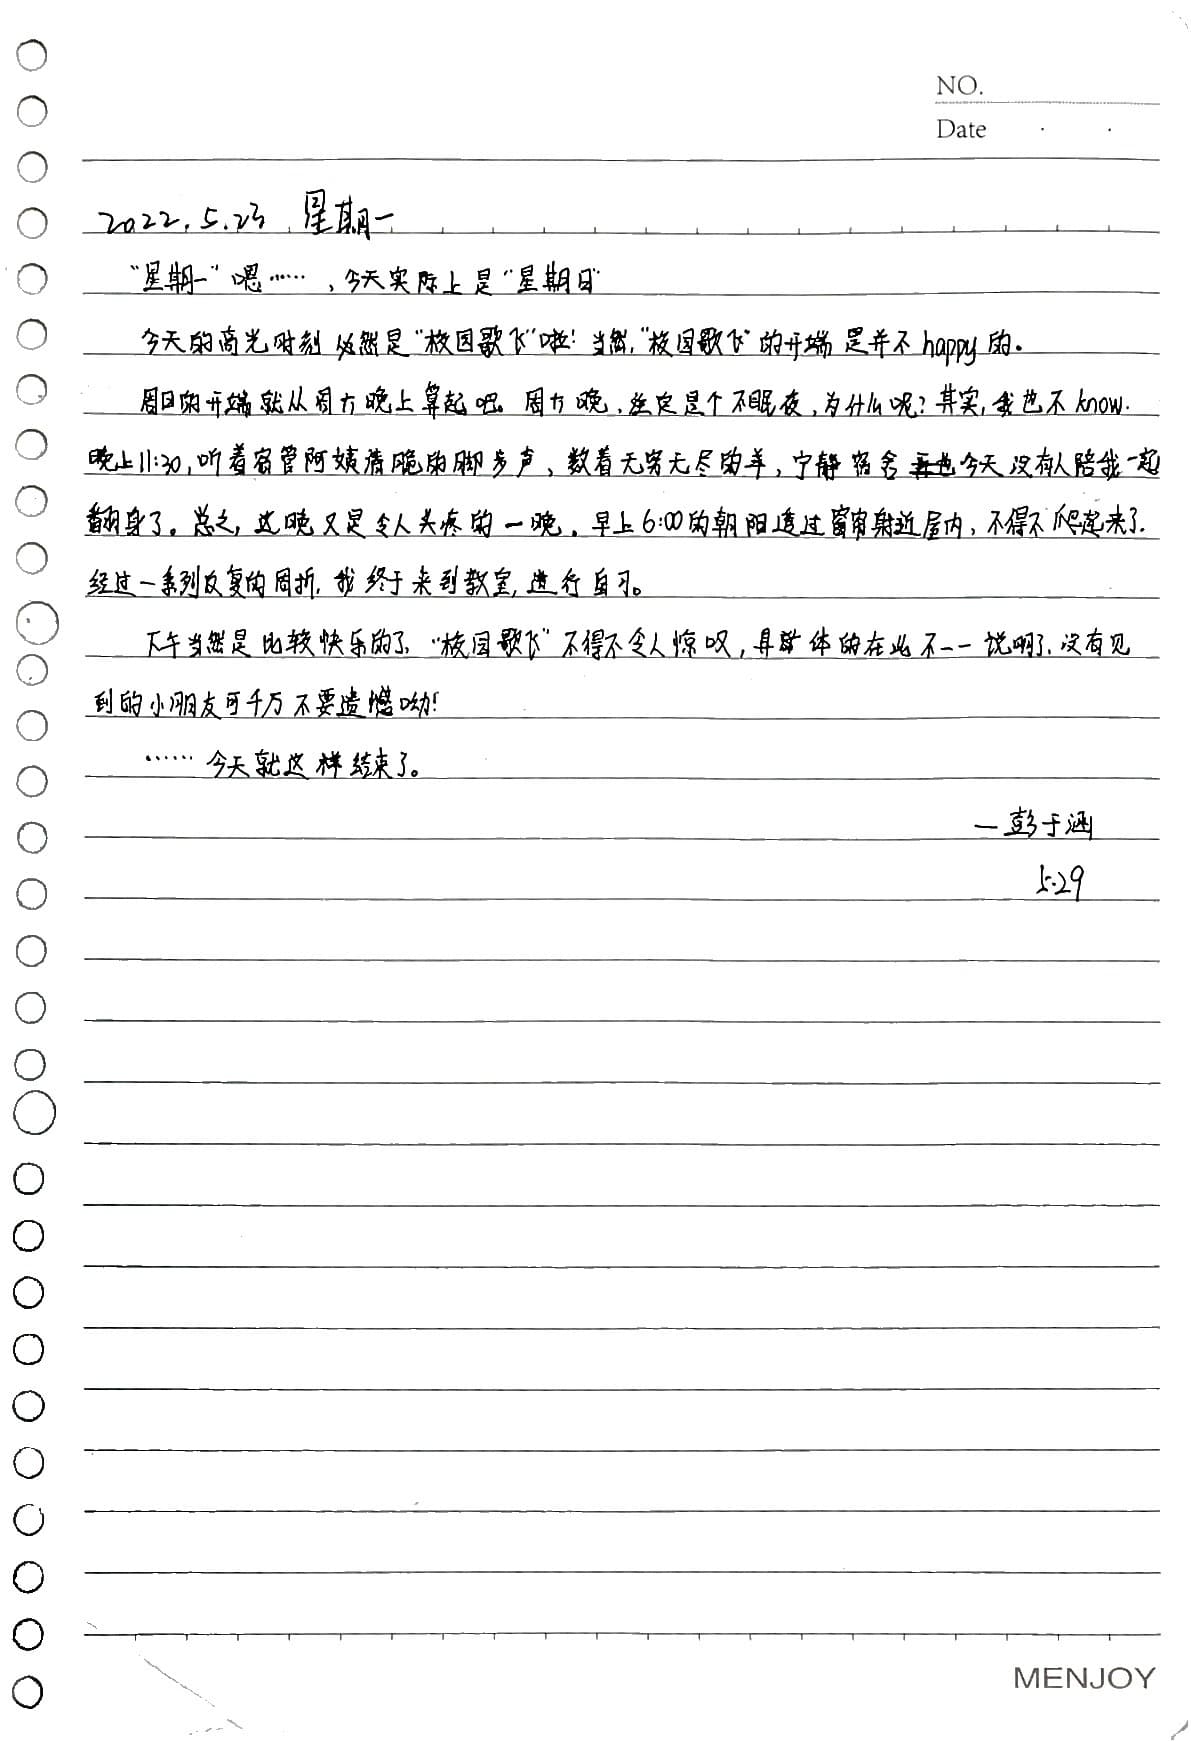 NO.
Date
2022.5.23 星期一
“星期一”嗯……，今天实际上是“星期日”
今天的高光时刻必然是“校园歌飞”啦！当然，“校园歌飞”的开端是并不happy的。
周日的开端就从周六晚上算起吧。周六晚，注定是个不眠夜，为什么呢？其实，我也不know.
晚上11:30，听着宿管阿姨清脆的脚步声、数着无穷无尽的羊，宁静宿舍今天没有人陪我一起
翻身了。总之，这晚又是令人头疼的一晚。早上6:00的朝阳透过窗帘射近屋内，不得不爬起来了.
经过一系列反复的周折，我终于来到教室，进行自习。
下午当然是比较快乐的了，“校园歌飞”不得不令人惊叹，具体的在此不一一说明了，没有见
到的小朋友可千万不要遗憾呦！
……今天就这样结束了。
—彭于涵
5.29
MENJOY